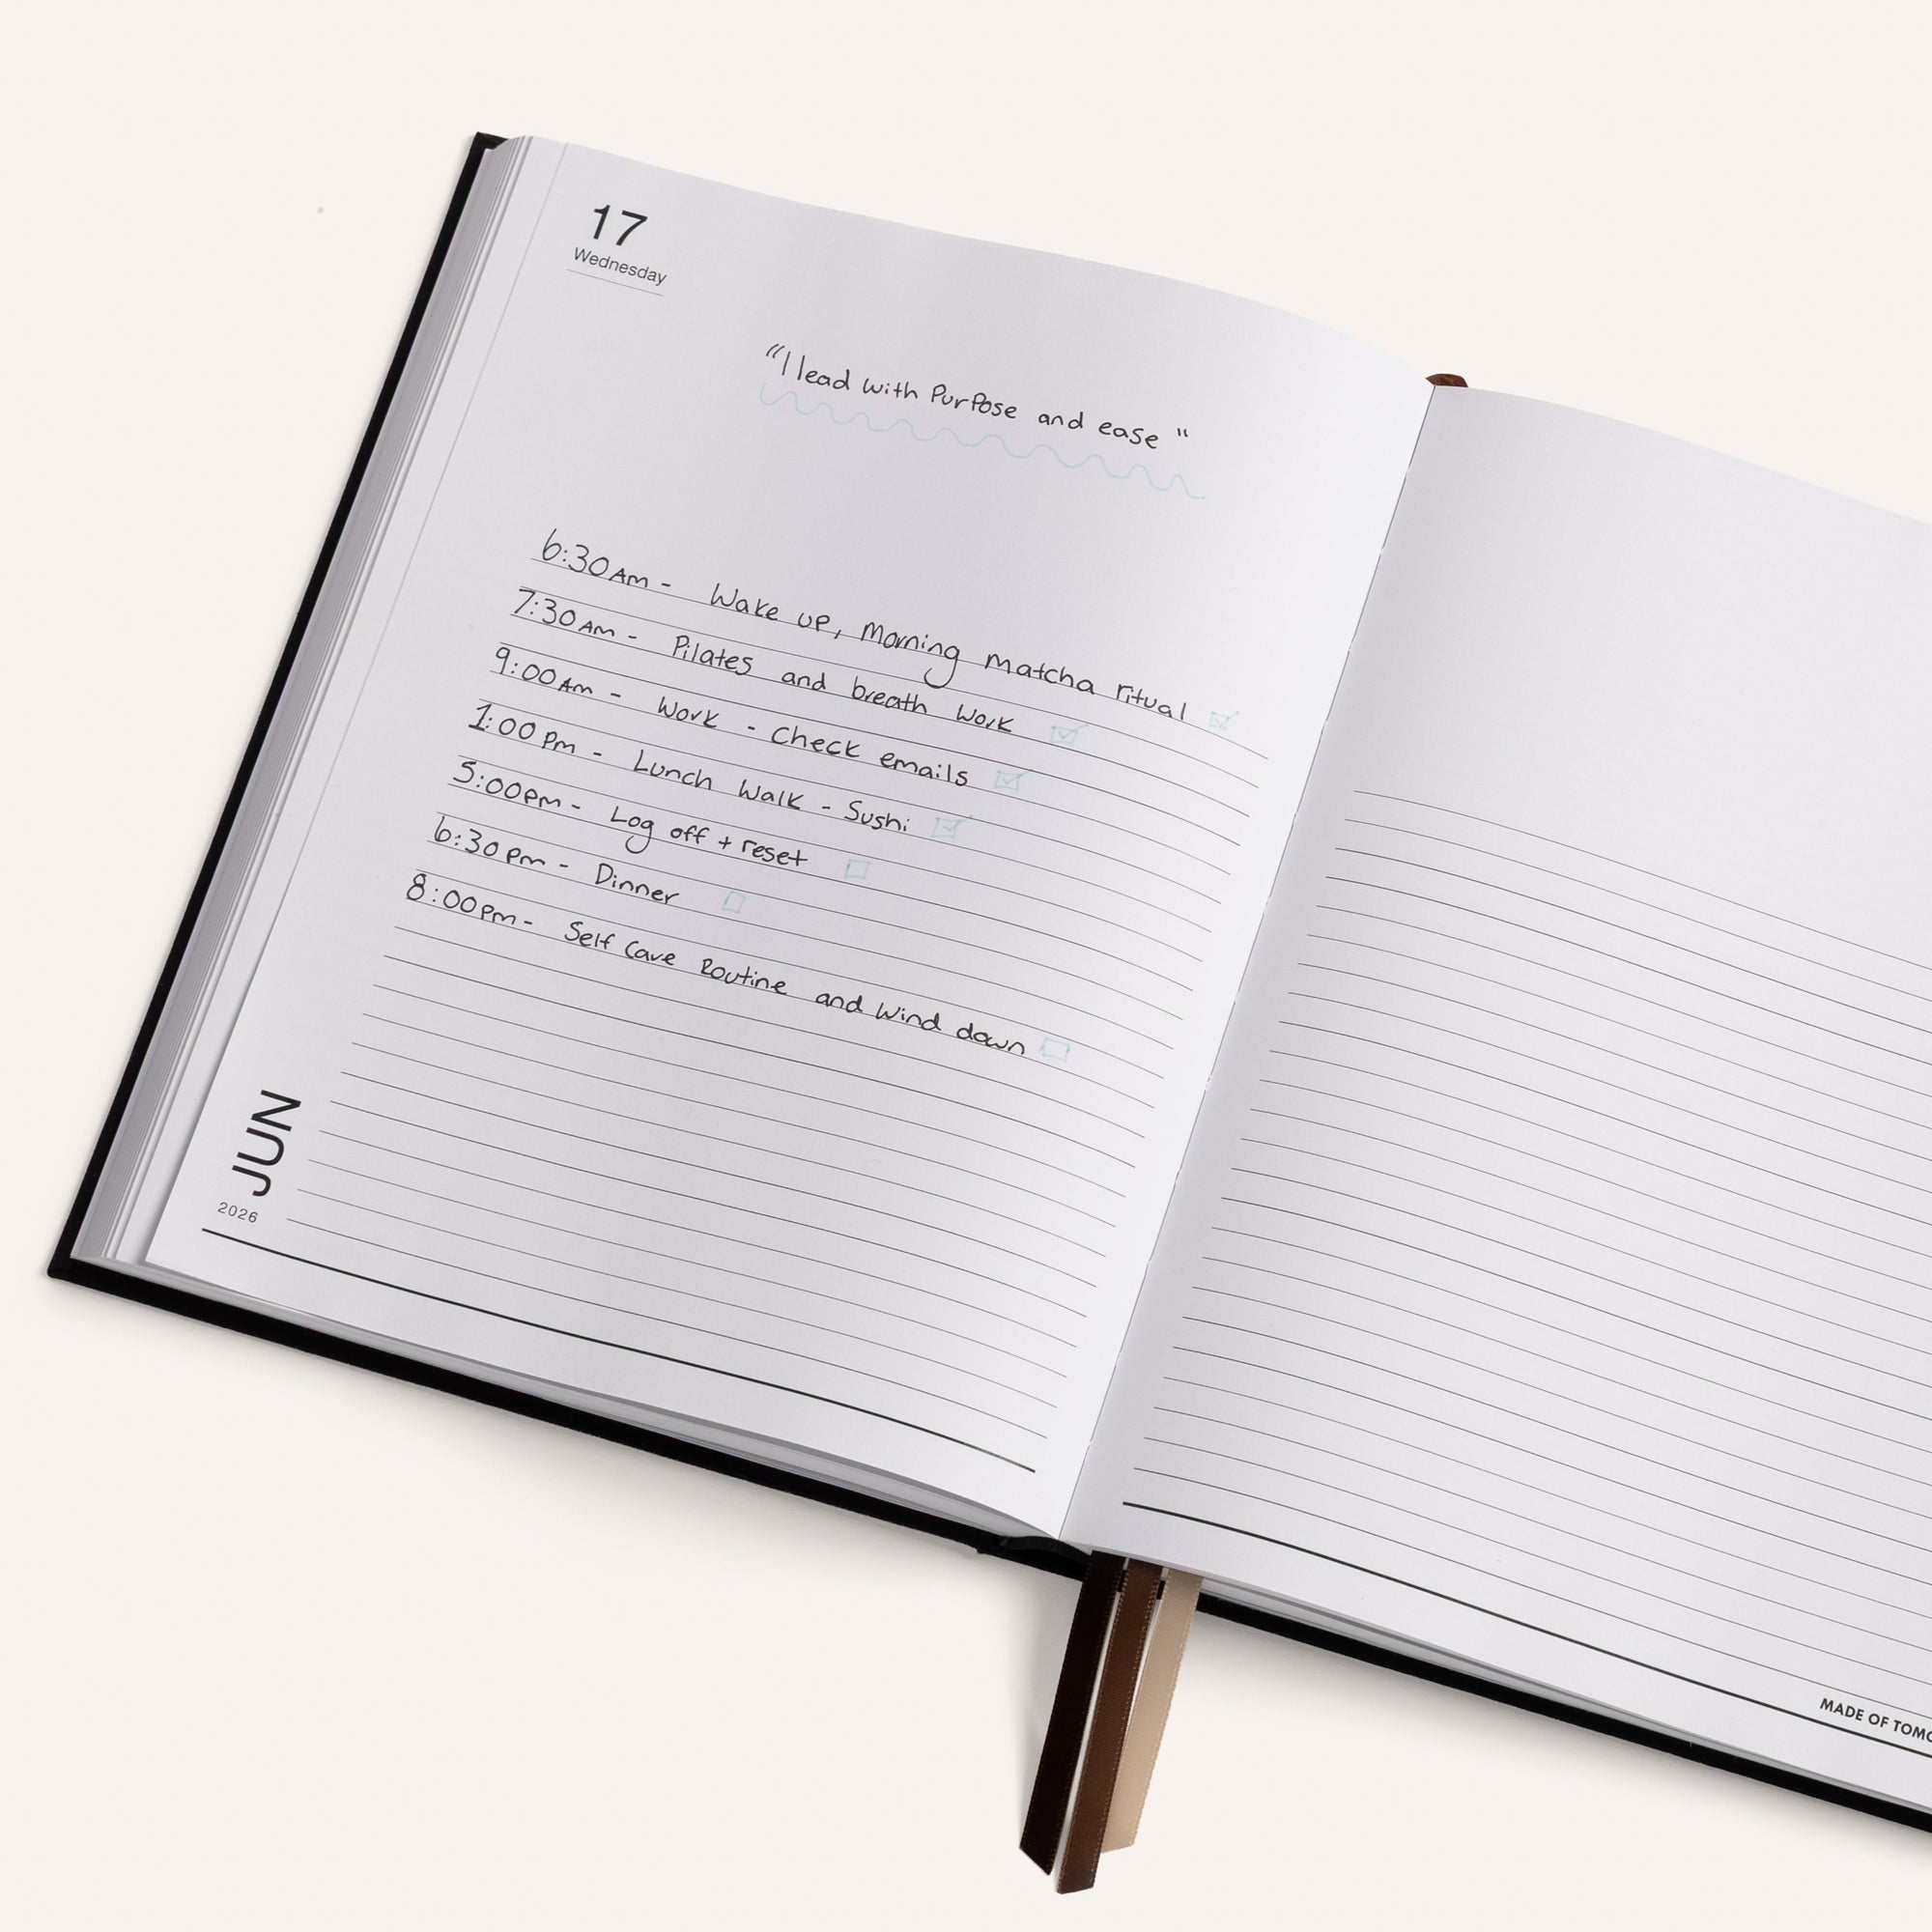 17
Wednesday
"I lead with Purpose and ease"
6:30 Am - Wake up, morning matcha ritual
7:30 Am - Pilates and breath work
9:00 Am - Work - Check emails
1:00 Pm - Lunch Walk - Sushi
5:00 pm - Log off + reset
6:30 pm - Dinner
8:00 pm - Self Care Routine and Wind down
JUN
2026
MADE OF TOMO